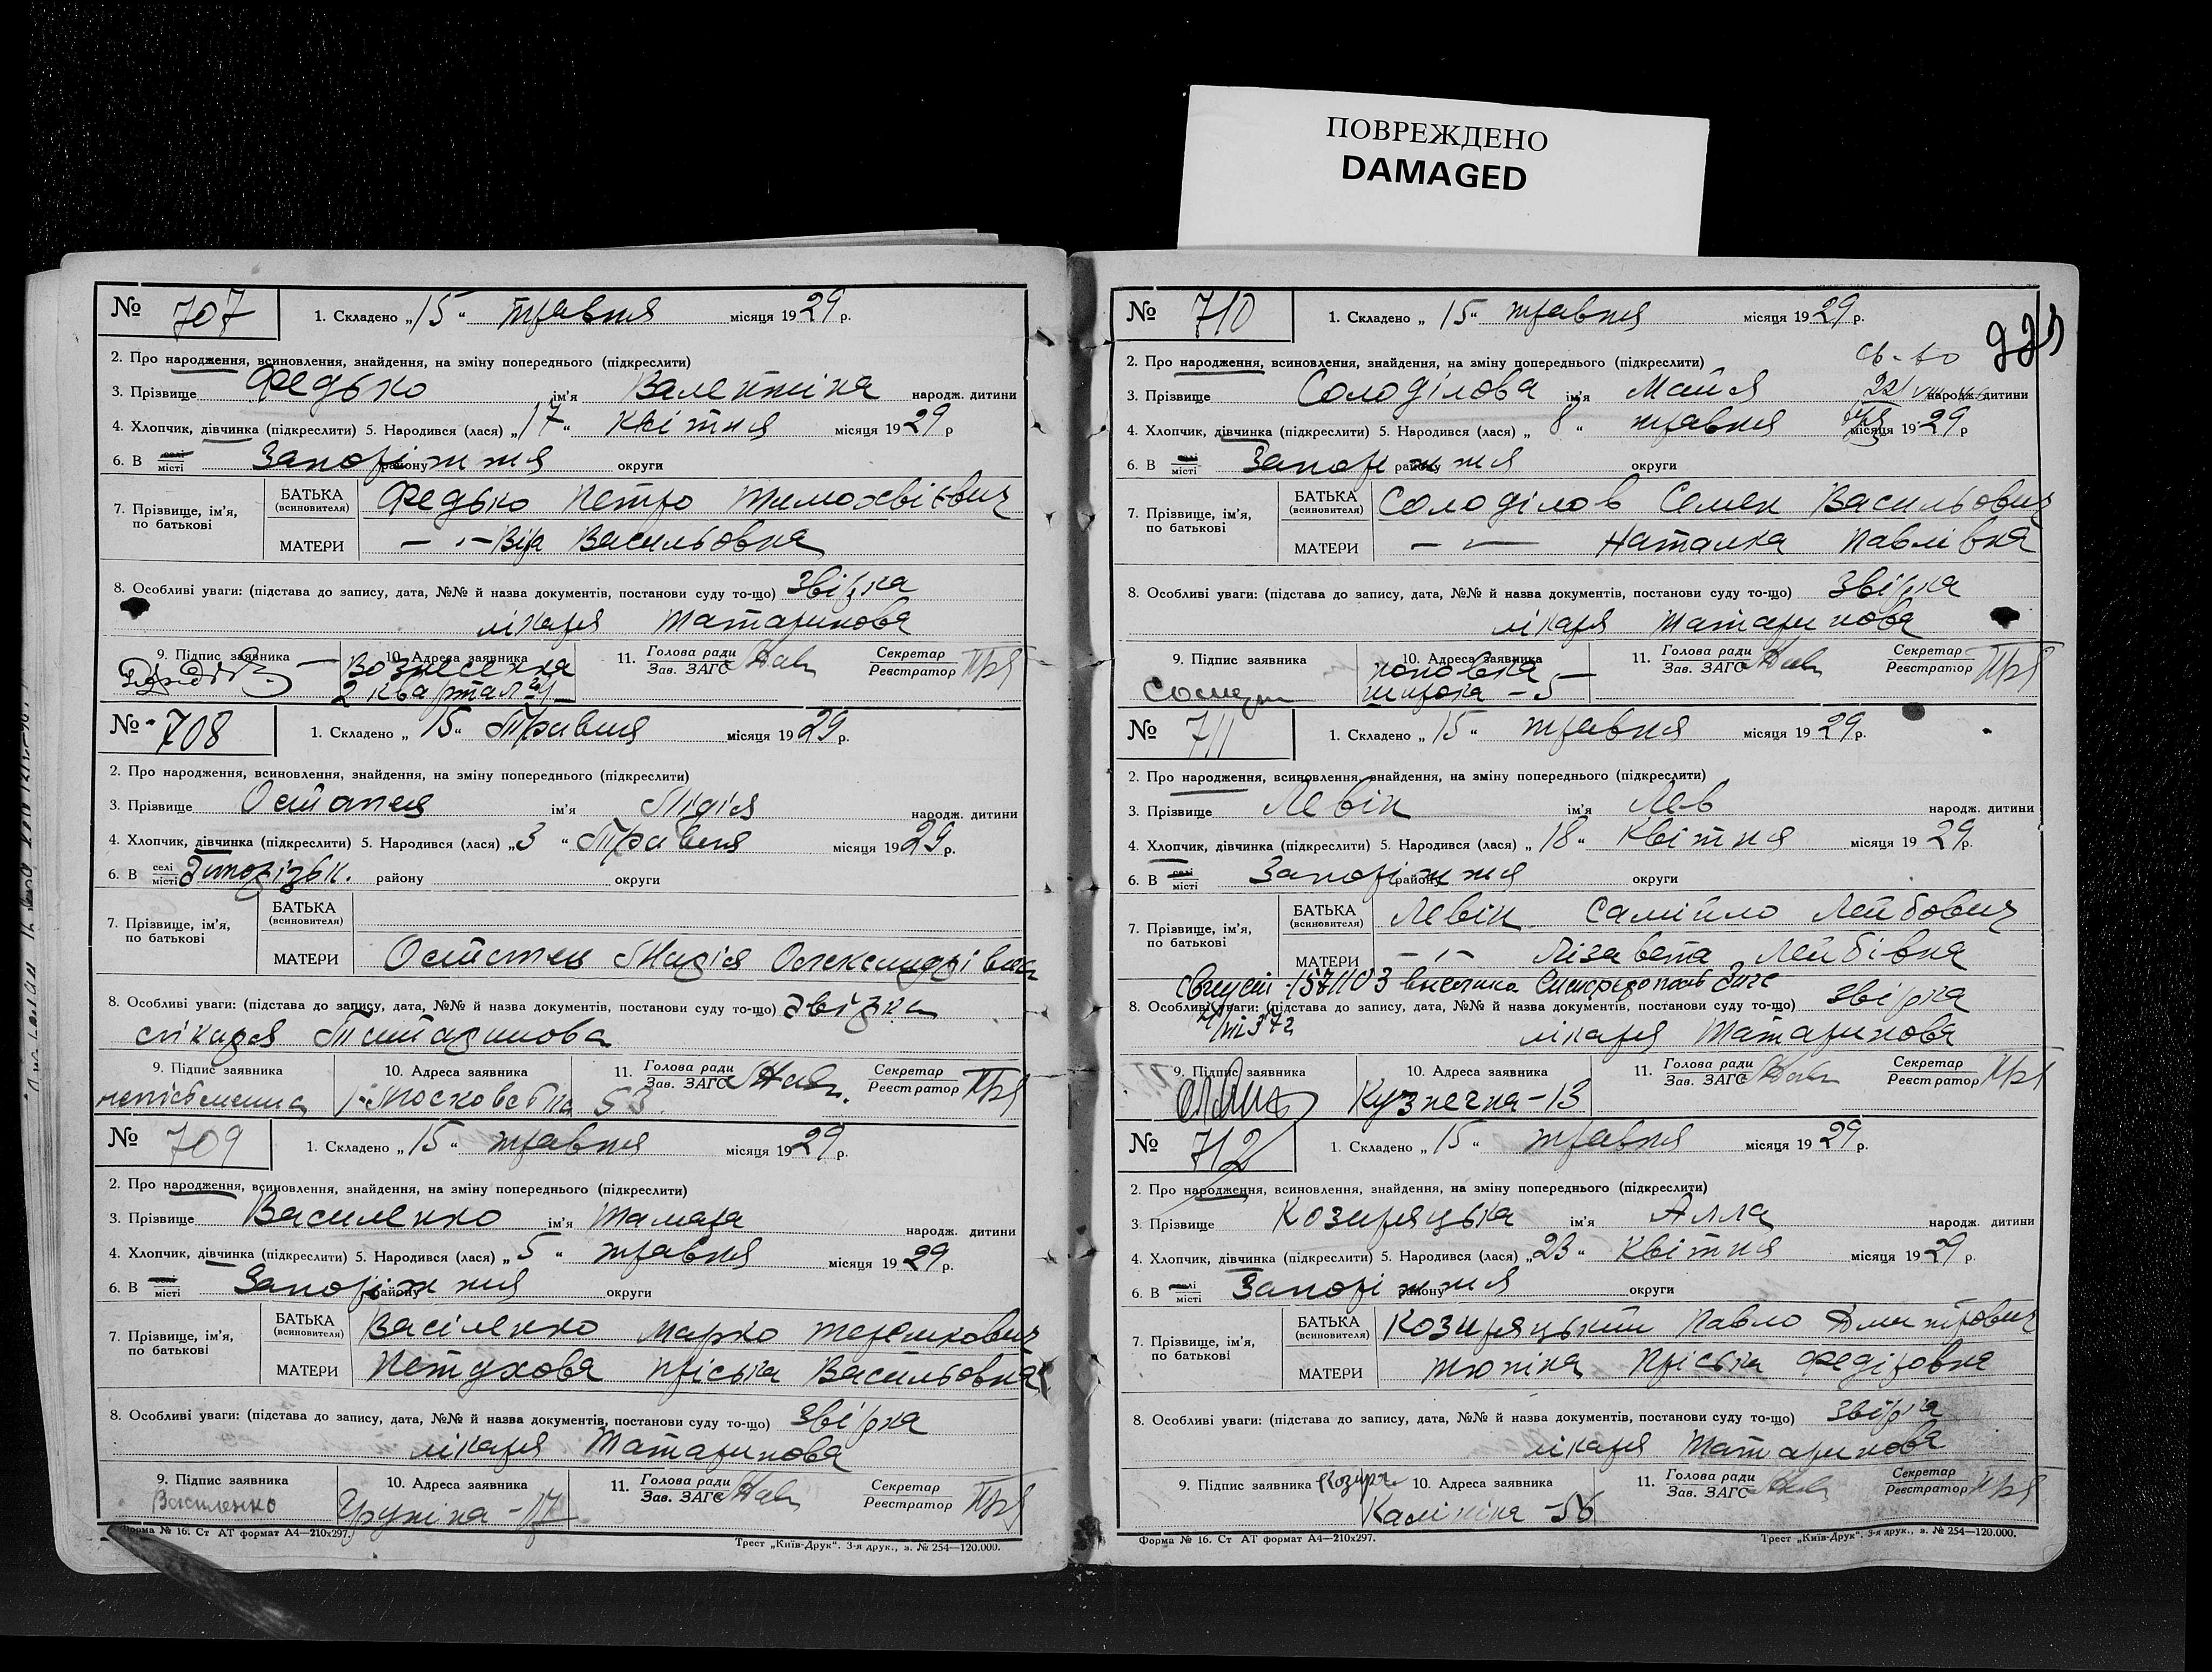 ПОВРЕЖДЕНО
DAMAGED
№ 707 1. Складено „15“ травня місяця 1929 р.
2. Про народження, всиновлення, знайдення, на зміну попереднього (підкреслити)
3. Прізвище Федько ім'я Валентіна народж. дитини
4. Хлопчик, дівчинка (підкреслити) 5. Народився (лася) „17“ квітня місяця 1929 р
6. В селі місті Запоріжжя району округи
7. Прізвище, ім'я, по батькові
БАТЬКА (всиновителя) Федько Петро Тимохвієвич
МАТЕРИ — „ — Віра Васильовна
8. Особливі уваги: (підстава до запису, дата, №№ й назва документів, постанови суду то-що) Звірка
лікаря Татаринова
9. Підпис заявника 10. Адреса заявника 11. Голова ради Зав. ЗАГС Секретар Реєстратор
Вознесенка
2 квартал
№ 708 1. Складено „15“ Травня місяця 1929 р.
2. Про народження, всиновлення, знайдення, на зміну попереднього (підкреслити)
3. Прізвище ім'я Лідія народж. дитини
4. Хлопчик, дівчинка (підкреслити) 5. Народився (лася) „3“ Травня місяця 1929 р.
6. В селі місті Запорізьк. району округи
7. Прізвище, ім'я, по батькові
БАТЬКА (всиновителя)
МАТЕРИ Олександрівна
8. Особливі уваги: (підстава до запису, дата, №№ й назва документів, постанови суду то-що) звірка
лікаря Татаринова
9. Підпис заявника 10. Адреса заявника 11. Голова ради Зав. ЗАГС Секретар Реєстратор
неписьменна Московська 53
№ 709 1. Складено „15“ травня місяця 1929 р.
2. Про народження, всиновлення, знайдення, на зміну попереднього (підкреслити)
3. Прізвище Василенко ім'я Тамара народж. дитини
4. Хлопчик, дівчинка (підкреслити) 5. Народився (лася) „5“ травня місяця 1929 р.
6. В селі місті Запоріжжя району округи
7. Прізвище, ім'я, по батькові
БАТЬКА (всиновителя) Васіленко Марко Терешкович
МАТЕРИ Петухова Пріська Васильовна
8. Особливі уваги: (підстава до запису, дата, №№ й назва документів, постанови суду то-що) Звірка
лікаря Татаринова
9. Підпис заявника 10. Адреса заявника 11. Голова ради Зав. ЗАГС Секретар Реєстратор
Василенко -17
Форма № 16. Ст АТ формат А4—210х297.
Трест „Київ-Друк“. 3-я друк., з. № 254—120.000.
№ 710 1. Складено „15“ травня місяця 1929 р.
2. Про народження, всиновлення, знайдення, на зміну попереднього (підкреслити)
3. Прізвище Солоділова ім'я Майя народж. дитини
4. Хлопчик, дівчинка (підкреслити) 5. Народився (лася) „8“ травня місяця 1929 р
6. В селі місті Запоріжжя району округи
7. Прізвище, ім'я, по батькові
БАТЬКА (всиновителя) Солоділов Семен Васильович
МАТЕРИ — „ — Наталка Павлівна
8. Особливі уваги: (підстава до запису, дата, №№ й назва документів, постанови суду то-що) Звірка
лікаря Татаринова
9. Підпис заявника 10. Адреса заявника 11. Голова ради Зав. ЗАГС Секретар Реєстратор
№ 711 1. Складено „15“ травня місяця 1929 р.
2. Про народження, всиновлення, знайдення, на зміну попереднього (підкреслити)
3. Прізвище Левін ім'я Лев народж. дитини
4. Хлопчик, дівчинка (підкреслити) 5. Народився (лася) „18“ квітня місяця 1929 р.
6. В селі місті Запоріжжя району округи
7. Прізвище, ім'я, по батькові
БАТЬКА (всиновителя) Левін Самійло Лейбович
МАТЕРИ — „ — Лізавета Лейбівна
8. Особливі уваги: (підстава до запису, дата, №№ й назва документів, постанови суду то-що) звірка
лікаря Татаринова
9. Підпис заявника 10. Адреса заявника 11. Голова ради Зав. ЗАГС Секретар Реєстратор
Кузнечна-13
№ 712 1. Складено „15“ травня місяця 1929 р.
2. Про народження, всиновлення, знайдення, на зміну попереднього (підкреслити)
3. Прізвище Козиряцька ім'я Алла народж. дитини
4. Хлопчик, дівчинка (підкреслити) 5. Народився (лася) „23“ квітня місяця 1929 р.
6. В селі місті Запоріжжя району округи
7. Прізвище, ім'я, по батькові
БАТЬКА (всиновителя) Козиряцький Павло Дмитрович
МАТЕРИ Тюпіна Пріська Федіровна
8. Особливі уваги: (підстава до запису, дата, №№ й назва документів, постанови суду то-що) Звірка
лікаря Татаринова
9. Підпис заявника 10. Адреса заявника 11. Голова ради Зав. ЗАГС Секретар Реєстратор
Калініна -56
Форма № 16. Ст АТ формат А4—210х297.
Трест „Київ-Друк“. 3-я друк., з. № 254—120.000.